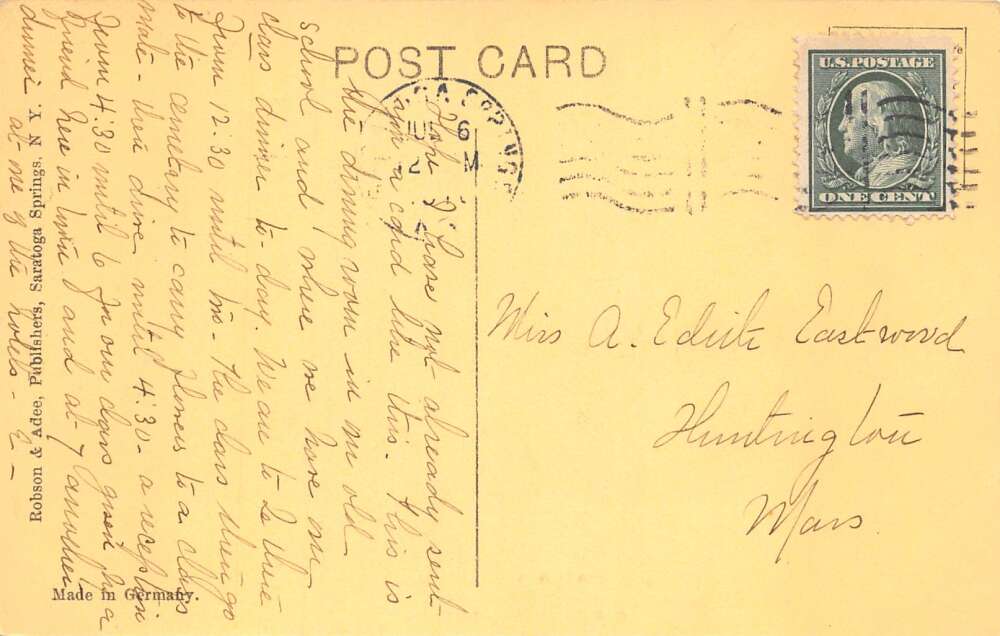 POST CARD
U.S. POSTAGE
ONE CENT
SPRINGS
JUN 6
2 M
Hope I have not already sent
you a card like this. This is
the dining room in our old
school and where we have our
class dinner to-day. We are to be there
from 12.30 until two - the class then go
to the cemetary to carry flowers to a class
mate - then drive until 4.30 - a reception
from 4.30 until 6 for our class given by a
friend here in town and at 7 another
dinner at one of the hotels - E -
Miss A. Edith Eastwood
Huntington
Mass.
Robson & Adee, Publishers, Saratoga Springs, N. Y.
Made in Germany.